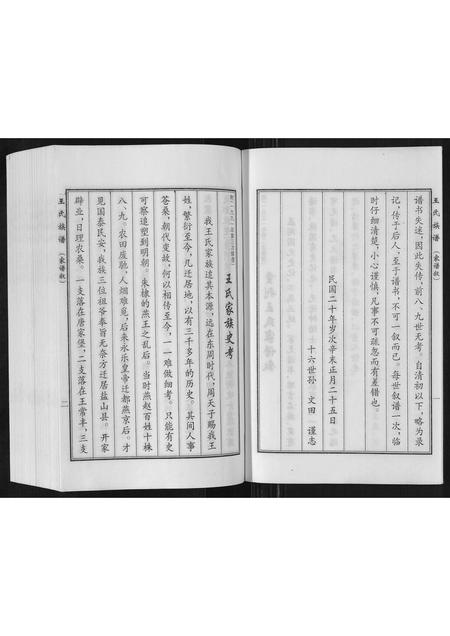 王氏族谱（家谱叙）
谱书失迷，因此失传，前八、九世无考。自清初以下，略为录
记，传于后人、至于谱书，不可一叙而已。每世叙谱一次，临
时仔细清楚，小心谨慎，凡事不可疏忽而有差错也。
民国二十年岁次辛未正月二十五日
十六世孙 文田 谨志
一
王氏家族史考
我王氏家族追其本源，远在东周时代，周天子赐我王
姓，繁衍至今，几迁居地，以有三千多年的历史。其间人事
苍桑，朝代变故，何以相传至今，一一难做细考。只能有史
可察追塑到明朝。朱棣的燕王之乱后。当时燕赵百姓十株
八、九。农田废驰，人烟难觅，后来永乐皇帝迁都燕京后。才
见国泰民安，我族三位祖爷奉旨无奈方迁居盐山县。开家
辟业，日理农桑。一支落在唐家堡，二支落在王常丰，三支
王氏族谱（家谱叙）
二